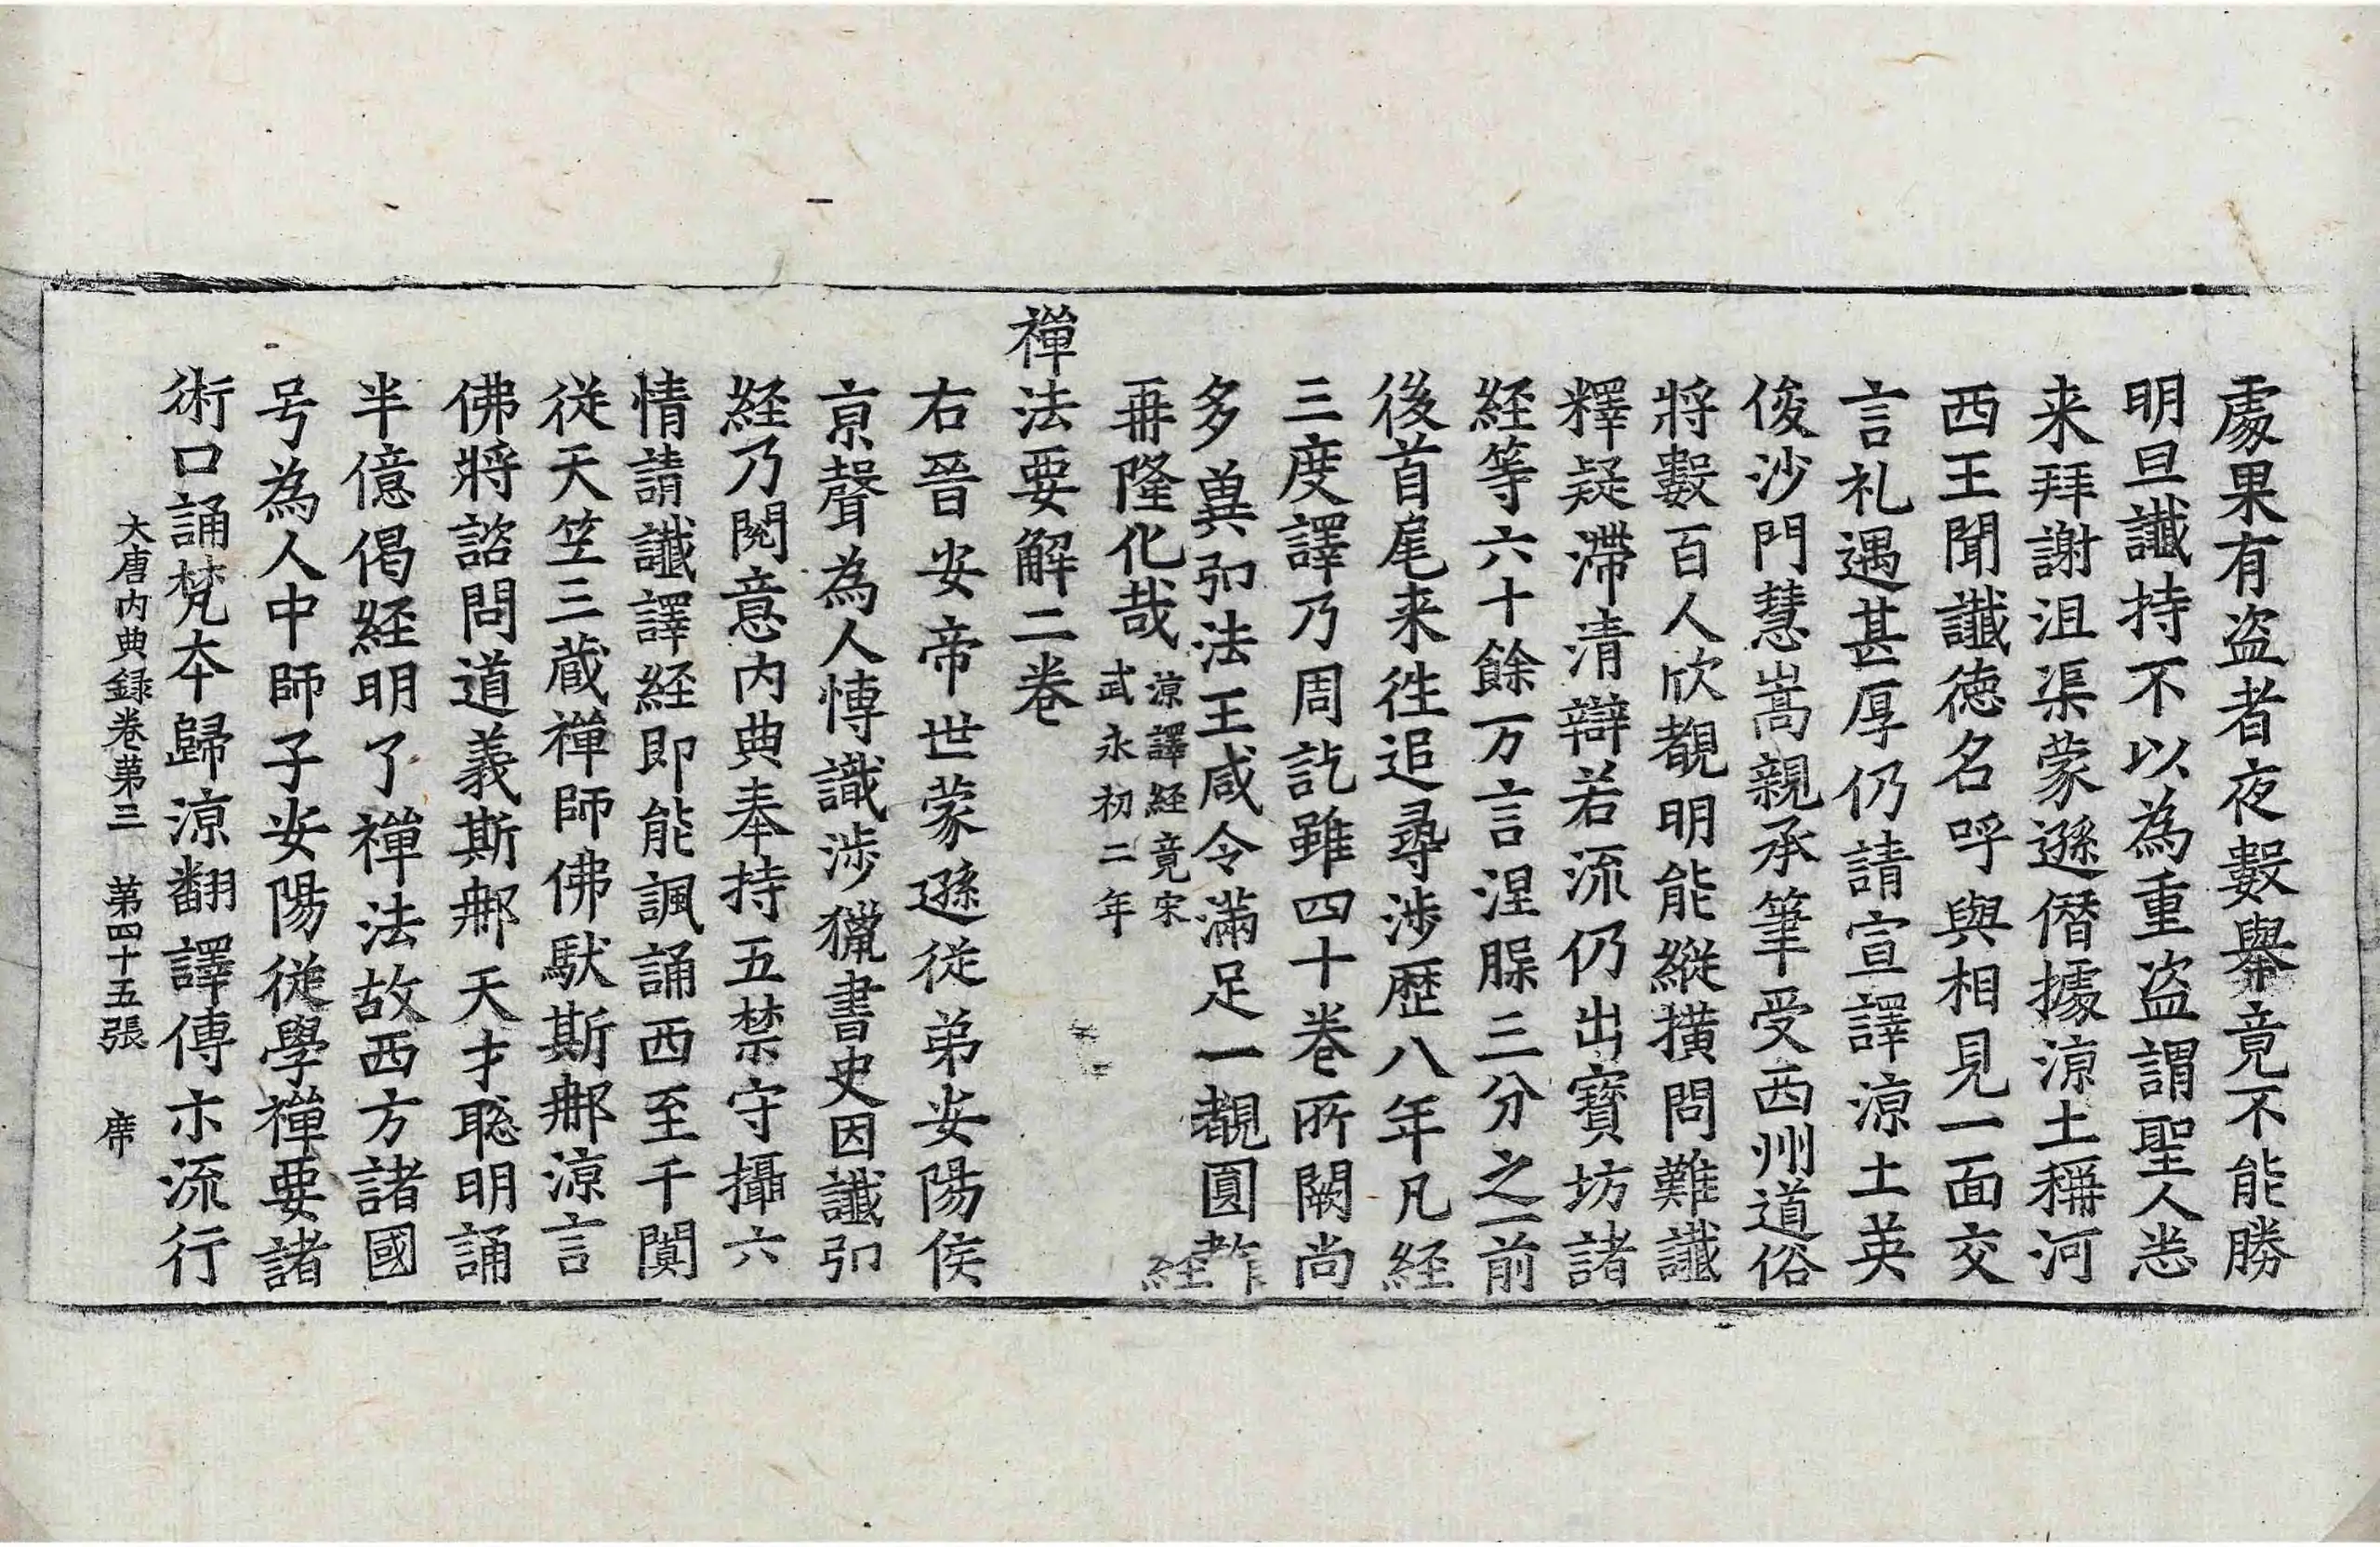 處果有盗者夜數舉竟不能勝
明旦讖持不以為重盗謂聖人悉
来拜謝沮渠蒙遜僭據涼土稱河
西王聞讖徳名呼與相見一面交
言礼遇甚厚仍請宣譯涼土英
俊沙門慧嵩親承筆受西州道俗
將數百人欣覩明能縱撗問難讖
釋疑滯清辯若流仍出寶坊諸
経等六十餘万言涅槃三分之一前
後首尾来徃追尋涉歴八年凡経
三度譯乃周訖雖四十巻所闕尚
多兾弘法王咸令滿足一覩圓教
経再隆化哉涼譯経竟宋
武永初二年
禪法要解二巻
右晉安帝世蒙遜従弟安陽侯
亰聲為人慱識涉獵書史因讖弘
経乃閱意内典奉持五禁守攝六
情請讖譯経即能諷誦西至于闐
従天竺三蔵禪師佛馱斯那涼言
佛將諮問道義斯那天才聡明誦
半億偈経明了禪法故西方諸國
号為人中師子安陽従學禪要諸
術口誦梵夲歸涼翻譯傳亦流行
大唐内典録巻第三　第四十五張　席